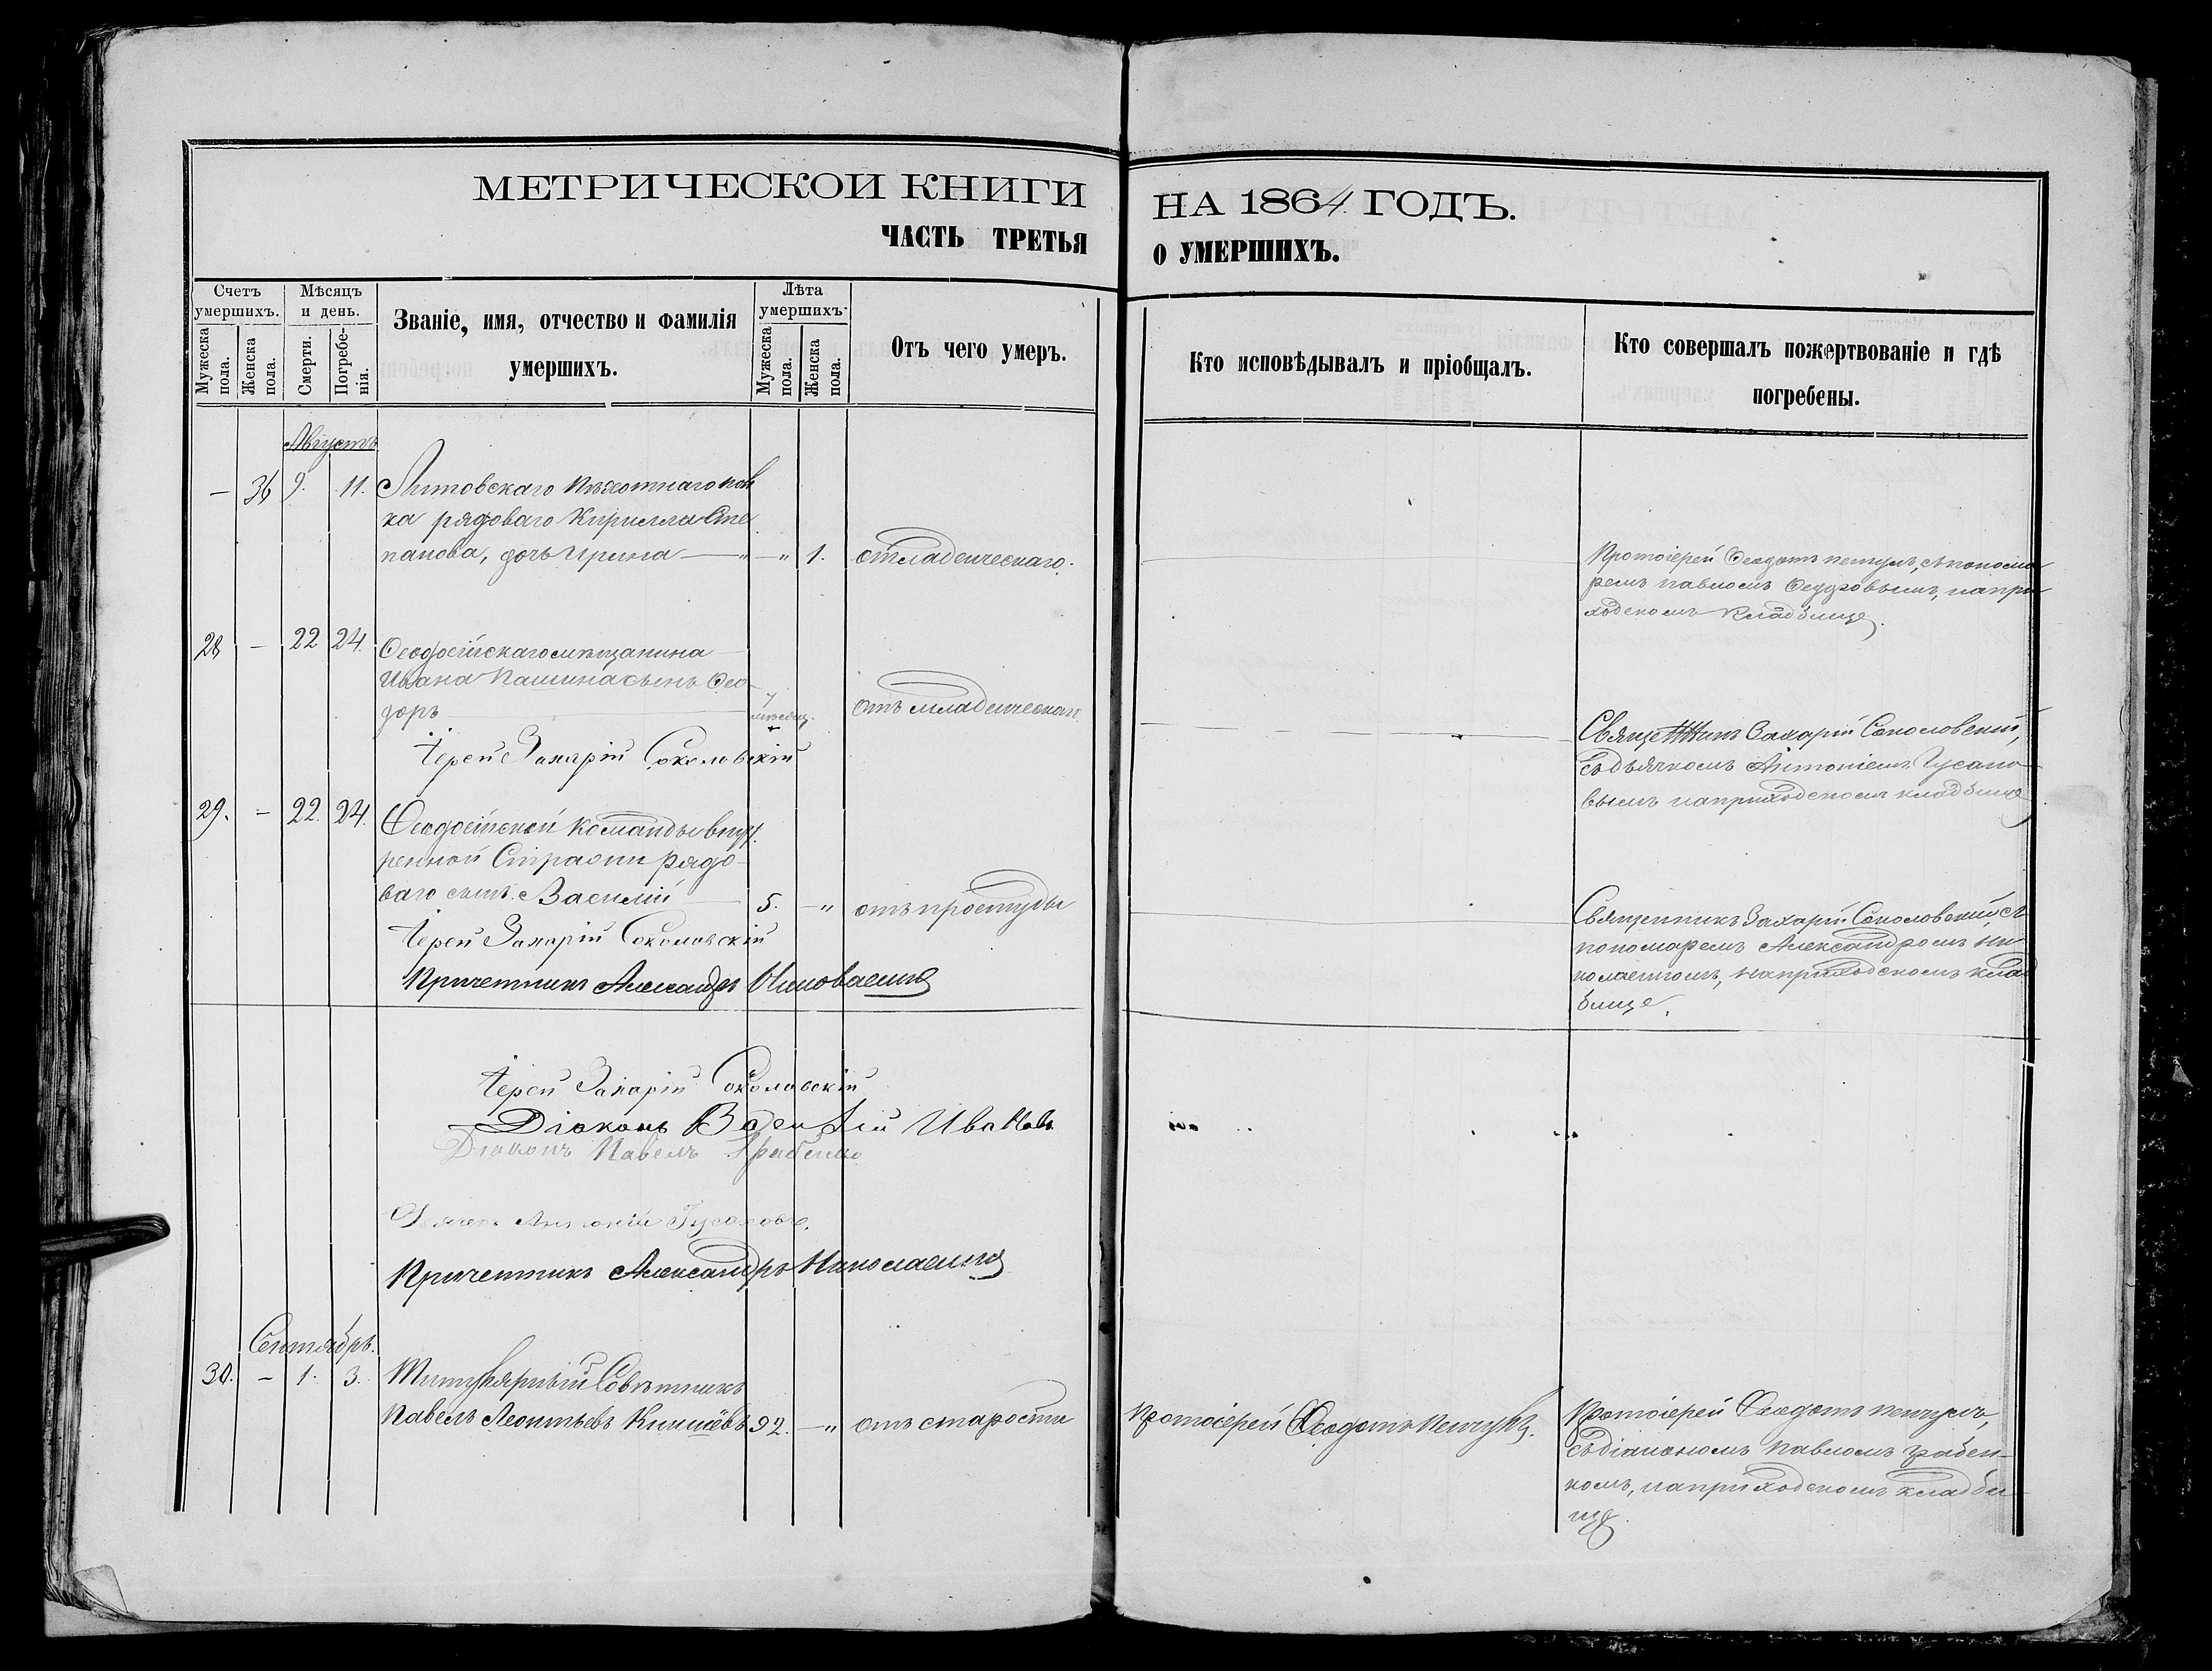 МЕТРИЧЕСКОЙ КНИГИ
ЧАСТЬ ТРЕТЬЯ
НА 1864 ГОДЪ.
О УМЕРШИХЪ.
Счетъ умершихъ.
Мужеска пола.
Женска пола.
Мѣсяцъ и день.
Смерти.
Погребенія.
Званіе, имя, отчество и фамилія
умершихъ.
Лѣта умершихъ.
Мужеска пола.
Женска пола.
Отъ чего умеръ.
Кто исповѣдывалъ и пріобщалъ.
Кто совершалъ пожертвованіе и гдѣ
погребены.
Августъ
— 36 9. 11. Литовскаго пѣхотнаго пол
ка рядоваго Кирилла Сте
панова, дочь Ирина — „ — „ 1. отладенческаго.
Протоіерей Ѳеодотъ, съ понома
ремъ Павломъ Ѳедоровымъ, напри
ходскомъ кладбище.
28 — 22 24. Ѳеодосійскаго мѣщанина
Ивана Пашина сынъ Ѳео
доръ 7 мѣсяц. отъ младенческаг.
Іерей Захарій Соколовскій
Священникъ Захарій Соколовскій,
съ дьячкомъ Антоніемъ Гусако
вымъ наприходскомъ кладбище
29. — 22. 24. Ѳеодосійской команды внут
ренной Стражи рядо
ваго сынъ Василій 5. — „ отъ простуды
Іерей Захарій Соколовскій
Причетникъ Александръ
Священникъ Захарій Соколовскій, съ
пономаремъ Александромъ Ни
колаевичомъ, наприходскомъ клад
бище.
Іерей Захарій Соколовскій
Діаконъ Василій Ивановъ
Діаконъ Павелъ Грабенко
Дьячекъ Антоній Гусаковъ.
Причетникъ Александръ
Сентябрь.
30. — 1. 3. Титулярный Совѣтникъ
Павелъ Леонтьевъ 92. — „ отъ старости
Протоіерей Ѳеодотъ
Протоіерей Ѳеодотъ
съ діакономъ Павломъ Грабен
комъ, наприходскомъ кладби
ще.